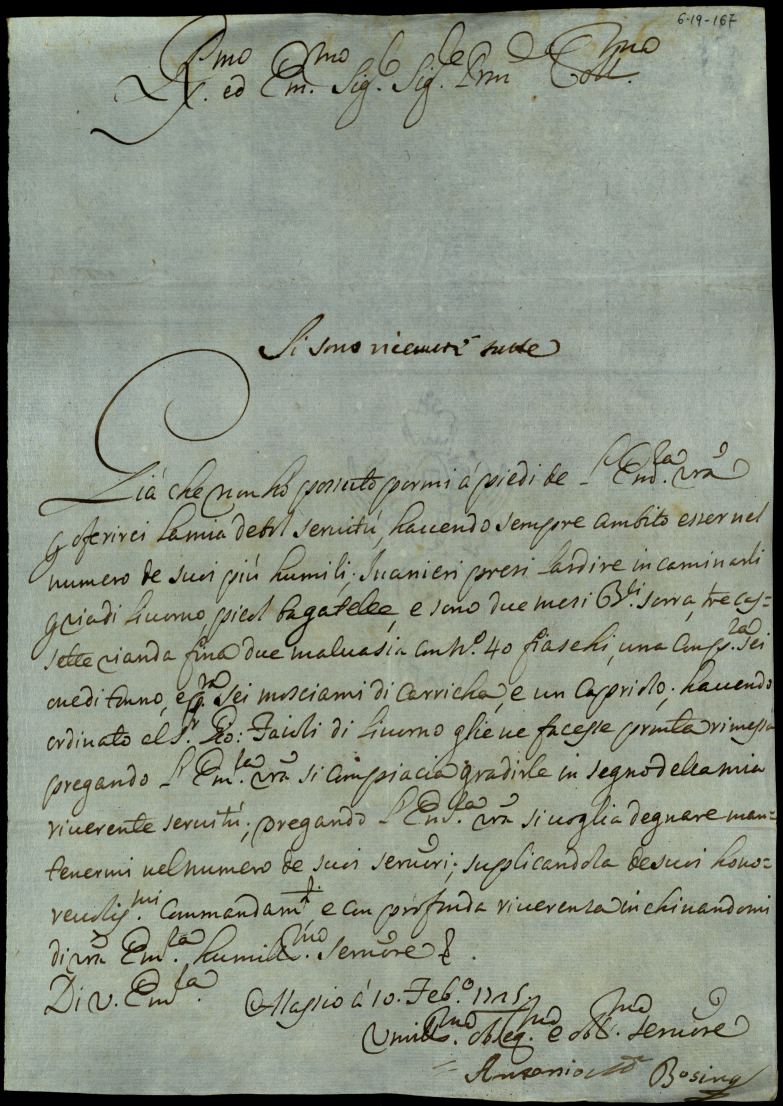 6-19-167
R.mo ed Em.mo Sig.r Sig.re Prn Coll.mo
Si sono riceuute tutte
Già che non hò possuto pormi á piedi de L'Em.la vrã
p oferirci la mia debol seruitú, hauendo sempre ambito esser nel
numero de suoi più humili; presi lardire incaminarli
p via di Liuorno picol bagatelee, e sono due mesi sorra, tre cas=
sette vianda fina due maluasia con N.o 40 fiaschi, una sei
oue di tonno, e sei mosciami di carricha, e un Capriolo; hauendo
ordinato al S.r di Liuorno glie ne facesse pronta rimessa
pregando L'Em.la vrã si compiacia gradirle in segno della mia
riuerente seruitú; pregando L'Em.la vrã si uoglia degnare man=
tenermi nel numero de suoi seruori; suplicandola de suoi hono=
reuolis.mi Commandam.ti, e con profonda riuerenza inchinandomi
di vrã Em.la humill.mo seruore
Di v. Em.la Alassio á 10. Feb.o 1725
Vmill.mo obleq.mo e obl.mo seruore
Antonio M.a Bosing